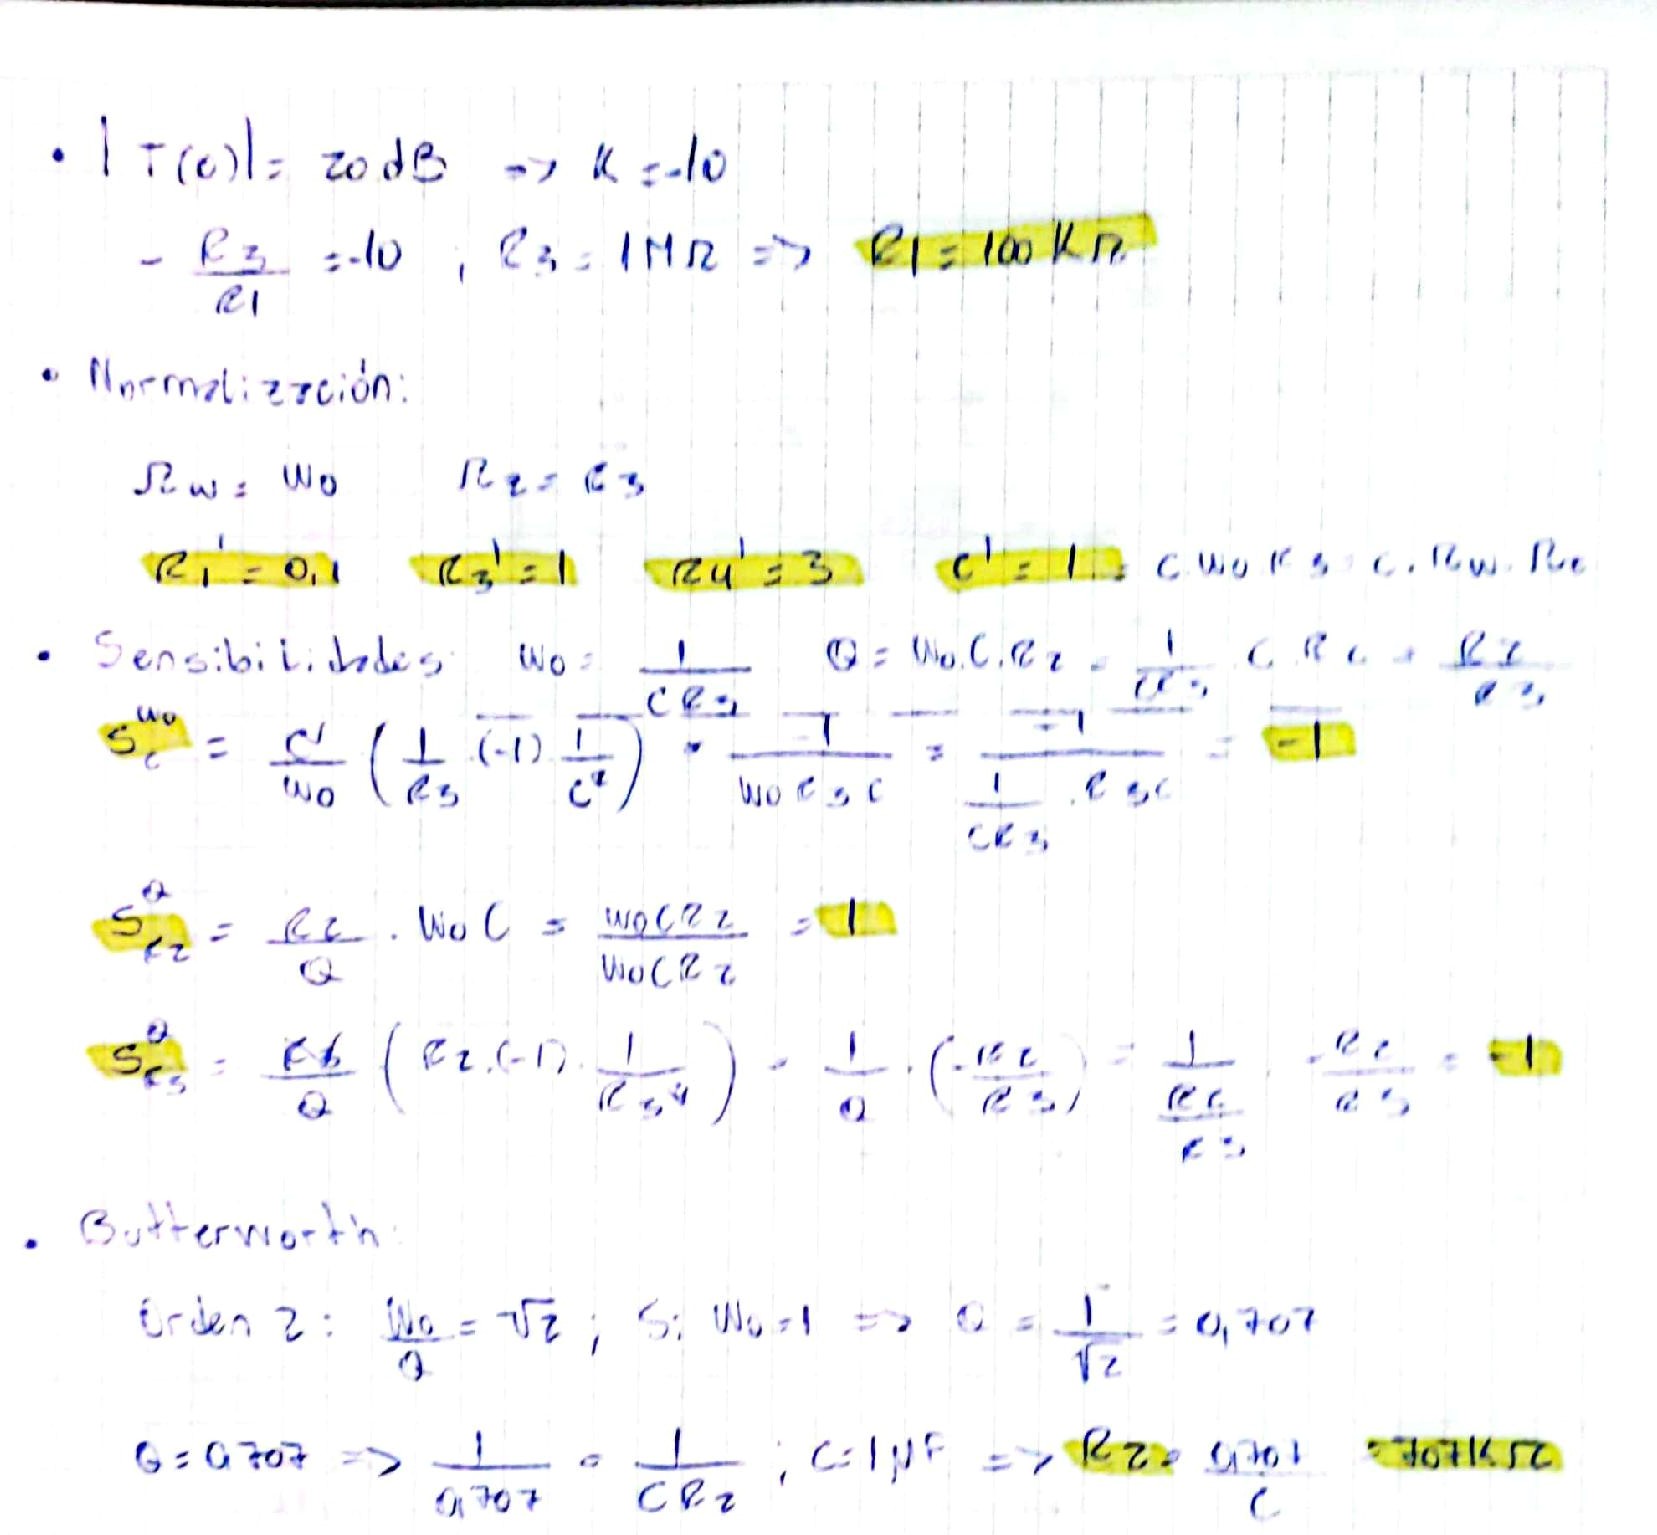 • |T(0)| = 20 dB => K = -10
- R3/R1 = -10 ; R3 = 1MΩ => R1 = 100 KΩ
• Normalización:
Ωw = W0    Ωz = R3
R1' = 0,1    R3' = 1    R4' = 3    C' = 1 = C.W0.R3 = C.Ωw.Ωz
• Sensibilidades: W0 = 1/(CR3)    Q = W0.C.R2 = 1/(CR3) . C.R2 = R2/R3
S_C^W0 = C/W0 (1/R3 .(-1). 1/C²) = -1/(W0R3C) = -1/(1/(CR3) . R3C) = -1
S_R2^Q = R2/Q . W0C = W0CR2/W0CR2 = 1
S_R3^Q = R3/Q (R2.(-1). 1/R3²) = 1/Q . (-R2/R3) = 1/(R2/R3) . -R2/R3 = -1
• Butterworth:
Orden 2: W0/Q = √2 ; Si W0=1 => Q = 1/√2 = 0,707
Q = 0,707 => 1/0,707 = 1/(CR2) ; C = 1μF => R2 = 0,707/C = 707KΩ